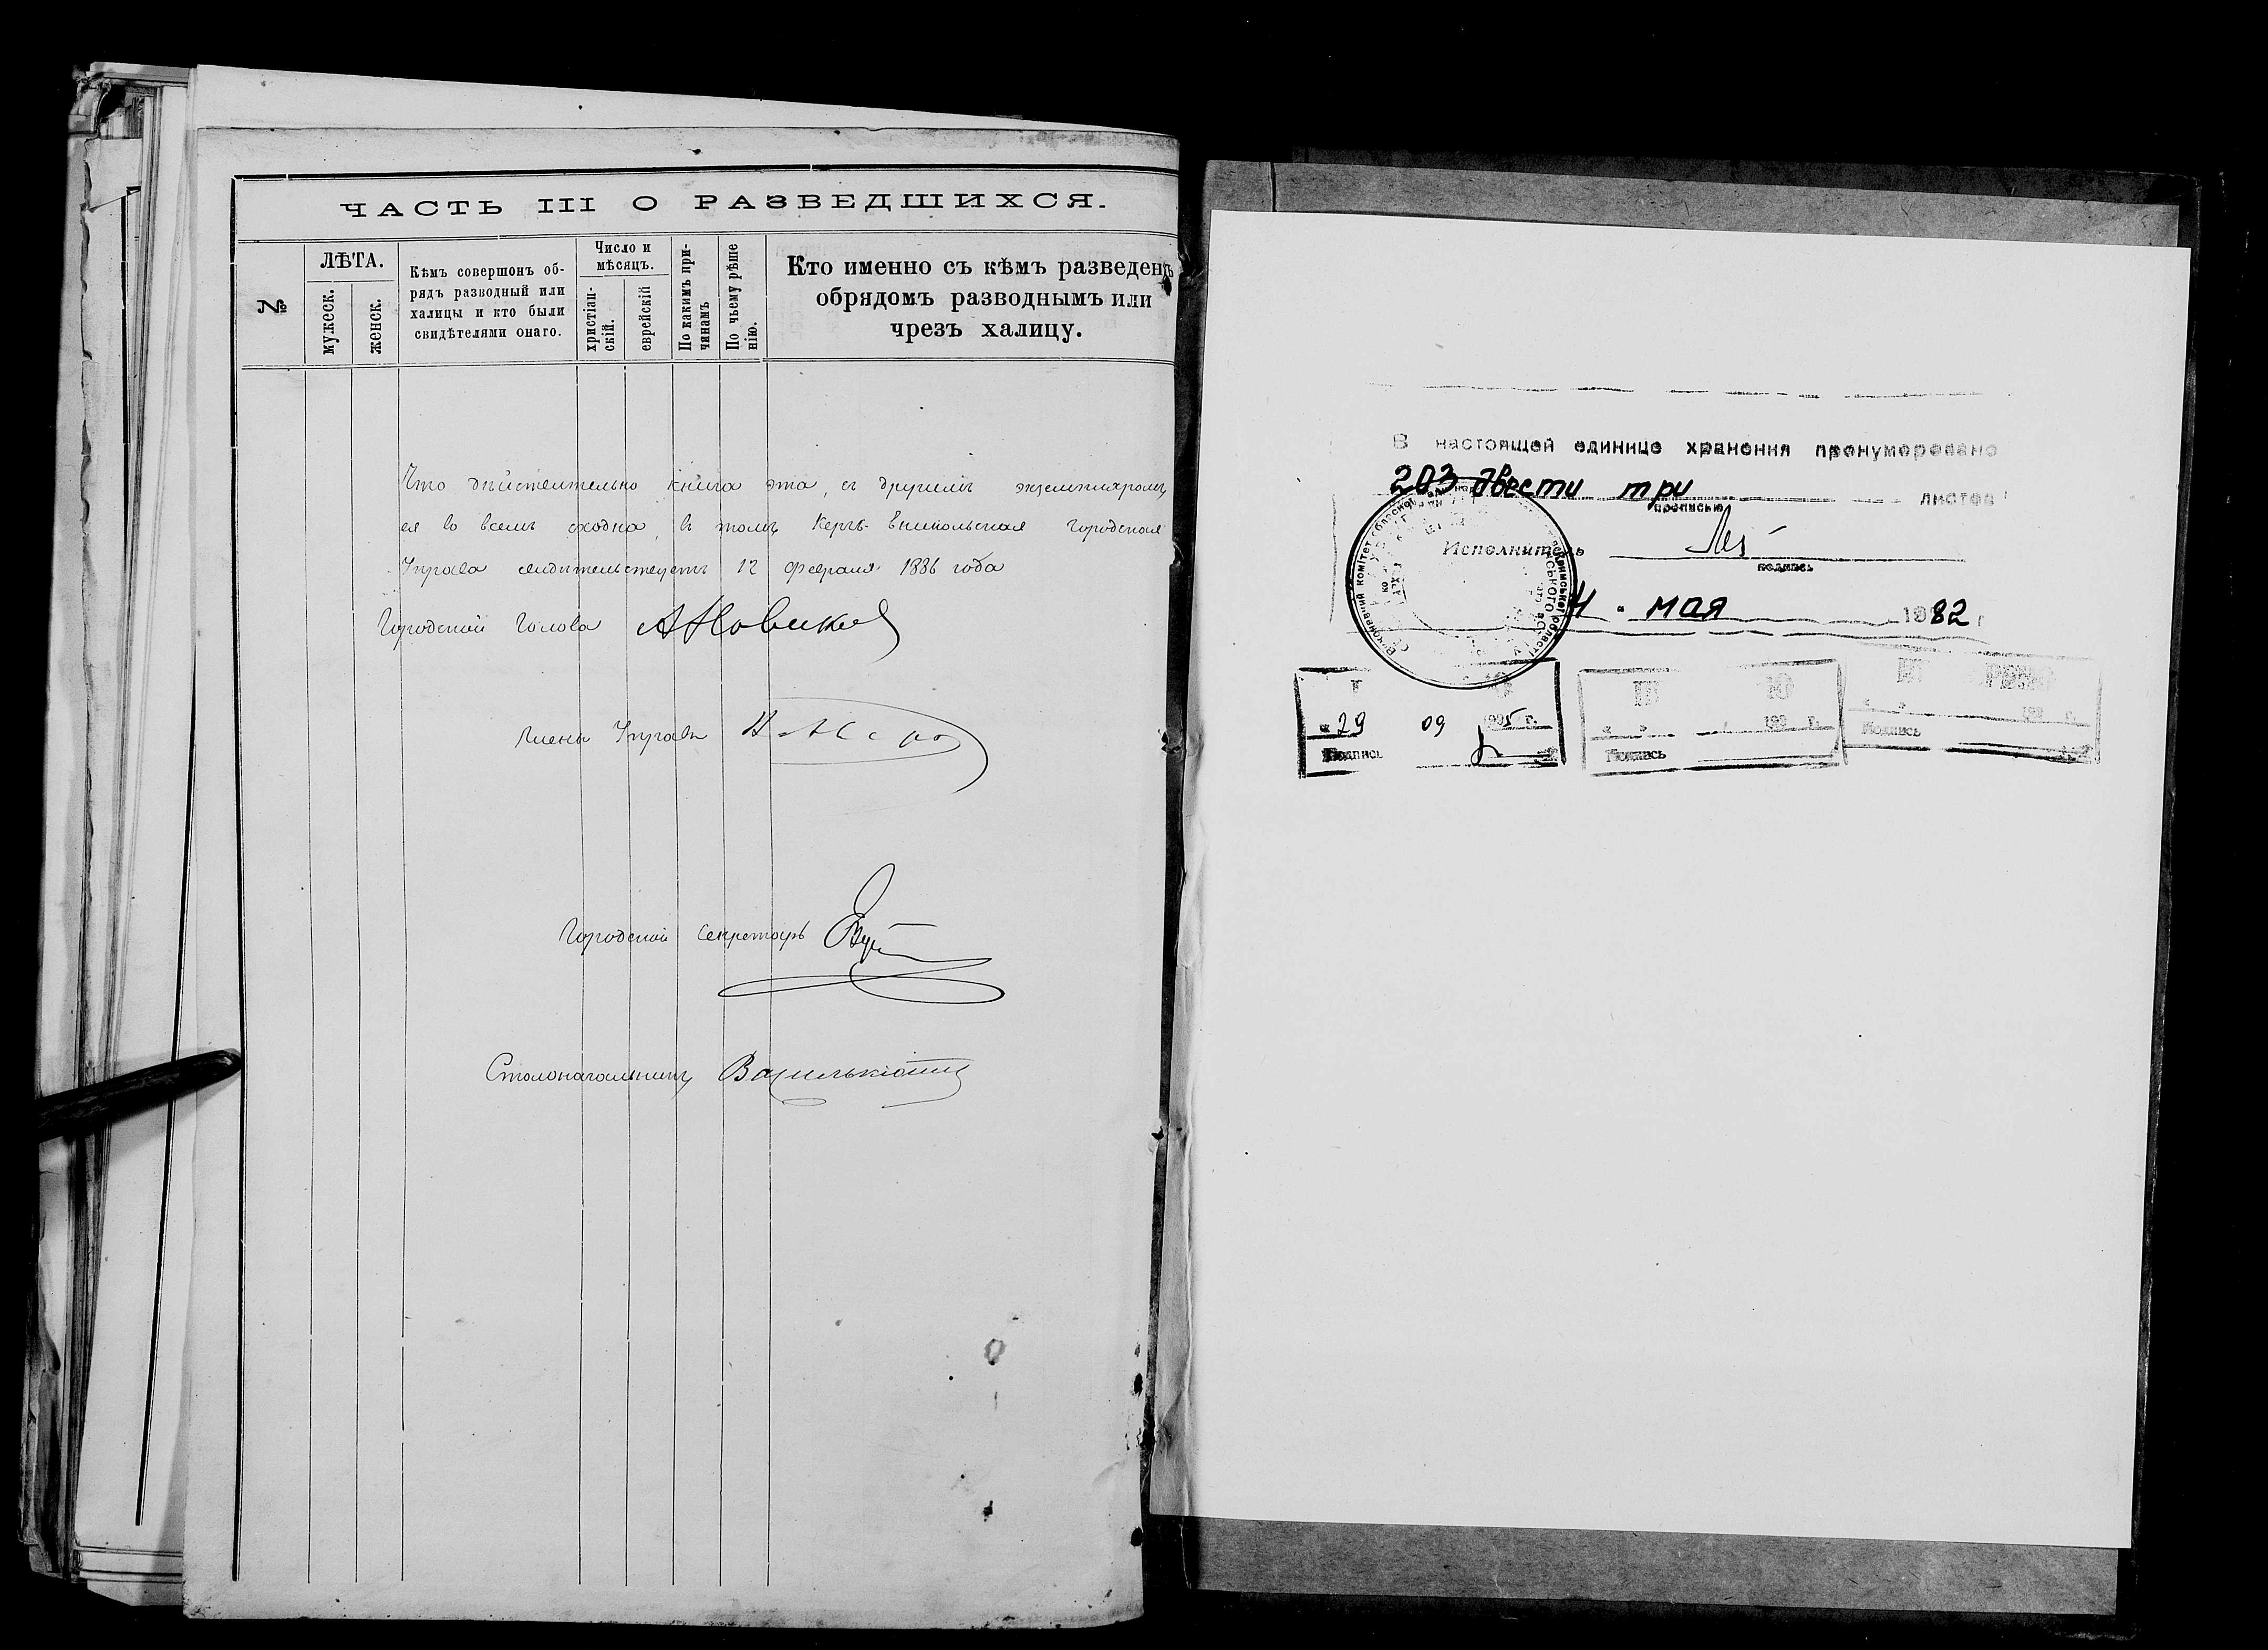 ЧАСТЬ III О РАЗВЕДШИХСЯ.
№
ЛѢТА.
мужеск.
женск.
Кѣмъ совершонъ об-
рядъ разводный или
халицы и кто были
свидѣтелями онаго.
Число и
мѣсяцъ.
христіан-
скій.
еврейскій
По какимъ при-
чинамъ
По чьему рѣше
нію.
Кто именно съ кѣмъ разведенъ
обрядомъ разводнымъ или
чрезъ халицу.
Что дѣйствительно книга эта, съ другимъ экземпляромъ
ея во всемъ сходна, въ томъ Керчь-Еникольская Городская
Управа свидѣтельствуетъ 12 февраля 1886 года
Городской Голова АНовиковъ
Членъ Управы
Городской Секретарь
Столоначальникъ
В настоящей единице хранения пронумеровано
203 двести три листов
прописью
Исполнитель
подпись
мая 1982 г.
Виконавчий комітет Кримської обласної
« 29 09 1995 г.
Подпись
« » 199 г.
Подпись
« » 199 г.
Подпись